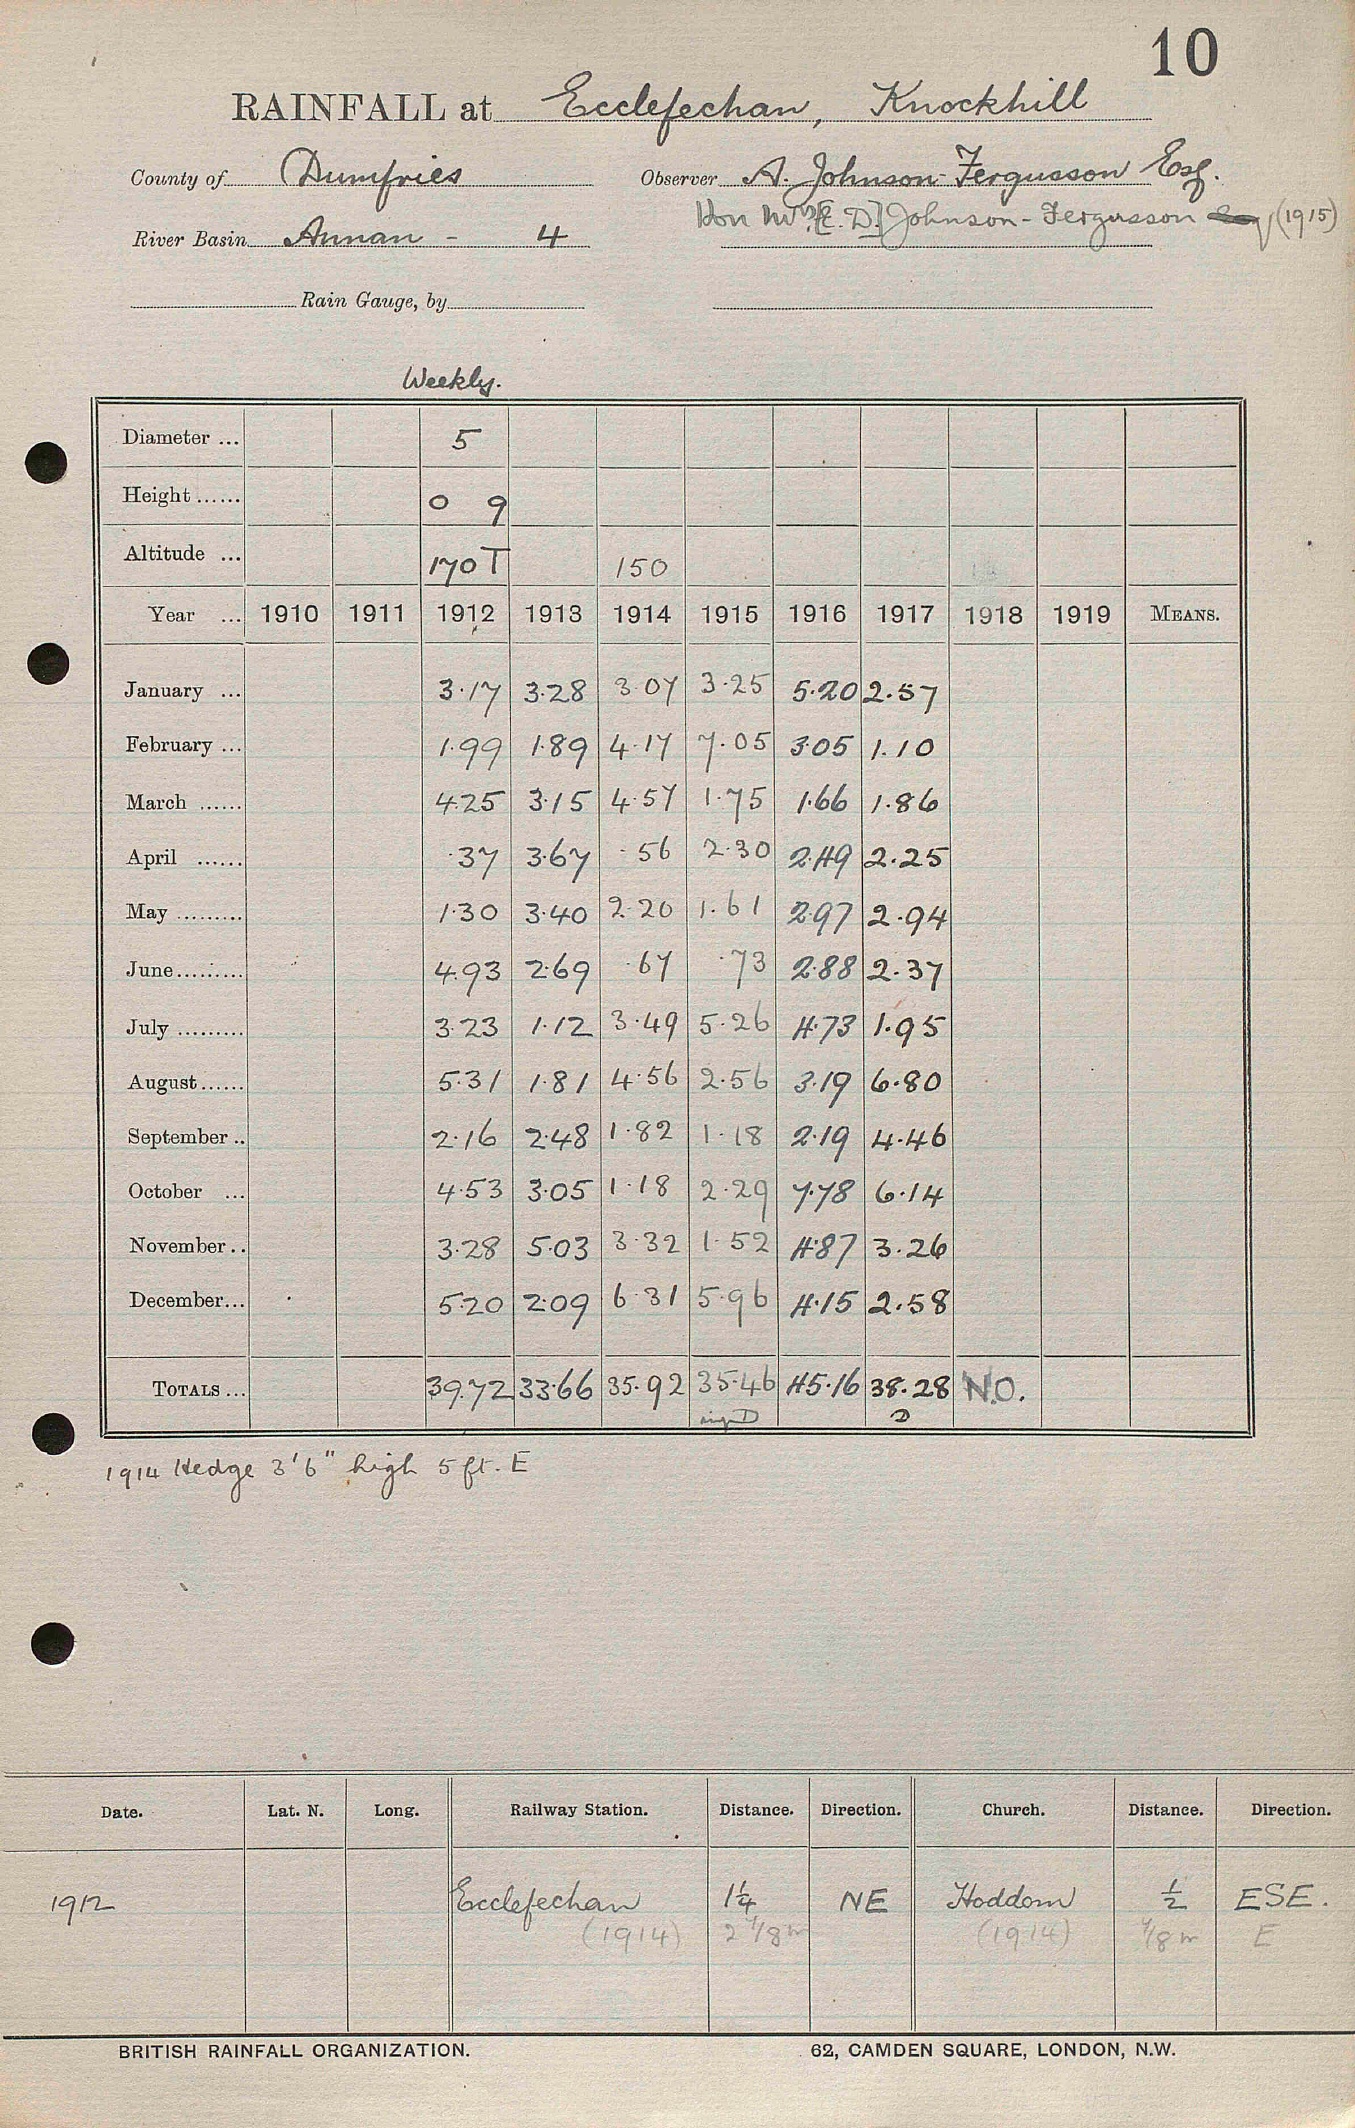 10
RAINFALL at Ecclefechan, Knockhill
County of Dumfries Observer A. Johnson-Fergusson Esq.
Hon Mrs [E. D.] Johnson-Fergusson (1915)
River Basin Annan - 4
Rain Gauge, by
Weekly.
Diameter ... 5
Height ...... 0 9
Altitude ... 170 T 150
Year ... 1910 1911 1912 1913 1914 1915 1916 1917 1918 1919 MEANS.
January ... 3.17 3.28 3.07 3.25 5.20 2.57
February ... 1.99 1.89 4.17 7.05 3.05 1.10
March ...... 4.25 3.15 4.57 1.75 1.66 1.86
April ...... .37 3.67 .56 2.30 2.49 2.25
May ......... 1.30 3.40 2.20 1.61 2.97 2.94
June ......... 4.93 2.69 .67 .73 2.88 2.37
July ......... 3.23 1.12 3.49 5.26 4.73 1.95
August ...... 5.31 1.81 4.56 2.56 3.19 6.80
September .. 2.16 2.48 1.82 1.18 2.19 4.46
October ... 4.53 3.05 1.18 2.29 7.78 6.14
November .. 3.28 5.03 3.32 1.52 4.87 3.26
December... 5.20 2.09 6.31 5.96 4.15 2.58
TOTALS ... 39.72 33.66 35.92 35.46 45.16 38.28 N.O.
D D
1914 Hedge 3'6" high 5 ft. E
Date. Lat. N. Long. Railway Station. Distance. Direction. Church. Distance. Direction.
1912 Ecclefechan 1¼ NE Hoddom ½ ESE.
(1914) 2 1/8 m (1914) 1/8 m E
BRITISH RAINFALL ORGANIZATION. 62, CAMDEN SQUARE, LONDON, N.W.